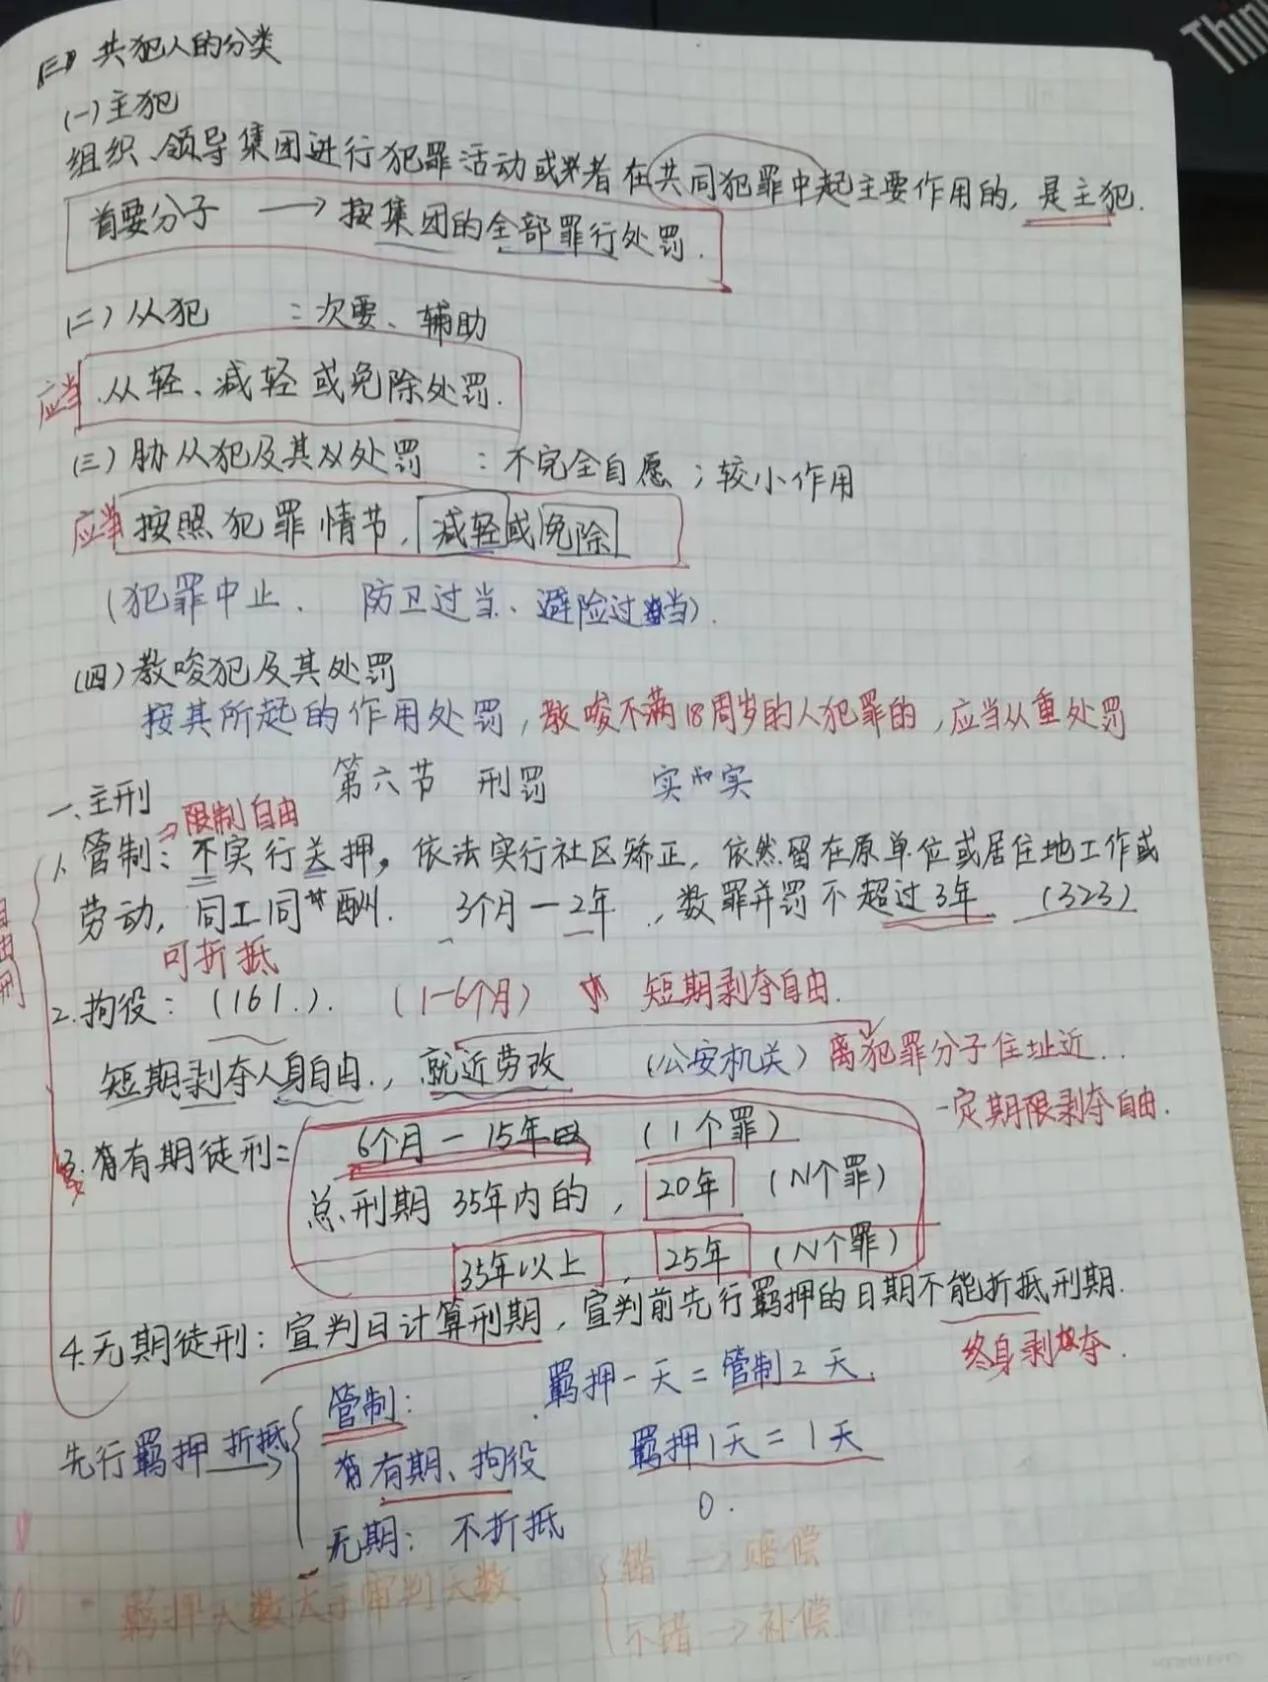 Thin
(三) 共犯人的分类
(一)主犯
组织、领导集团进行犯罪活动或者在共同犯罪中起主要作用的,是主犯.
首要分子 → 按集团的全部罪行处罚.
(二)从犯 :次要、辅助
应当 从轻、减轻或免除处罚.
(三)胁从犯及其处罚 :不完全自愿;较小作用
应当 按照犯罪情节,减轻或免除
(犯罪中止、防卫过当、避险过当).
(四)教唆犯及其处罚
按其所起的作用处罚,教唆不满18周岁的人犯罪的,应当从重处罚
第六节 刑罚 实而实
一、主刑
→限制自由
自由刑
1、管制:不实行关押,依法实行社区矫正,依然留在原单位或居住地工作或
劳动,同工同酬. 3个月—2年,数罪并罚不超过3年 (323)
可折抵
2.拘役:(161.). (1-6个月) 短期剥夺自由.
短期剥夺人身自由.,就近劳改 (公安机关) 离犯罪分子住址近..
一定期限剥夺自由.
3.有期徒刑= 6个月—15年 (1个罪)
总刑期35年内的,20年 (N个罪)
35年以上,25年 (N个罪)
4.无期徒刑:宣判日计算刑期,宣判前先行羁押的日期不能折抵刑期.
终身剥夺.
先行羁押折抵→
管制: 羁押一天=管制2天.
有期、拘役 羁押1天=1天
无期:不折抵 0.
羁押天数大于审判天数
错→赔偿
不错→补偿